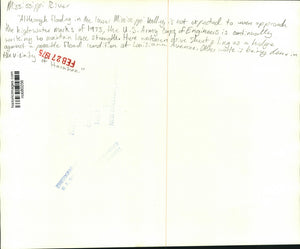 Mississippi River
"Although flooding in the lower Mississippi Valley is not expected to even approach
the highwater marks of 1973, the U.S. Army Corps of Engineers is continually
working to maintain levee strength. Here workmen drive sheet piling as a hedge
against a possible flood condition at Louisiana Avenue. Other work is being done in
the vicinity
FEB 27 1975